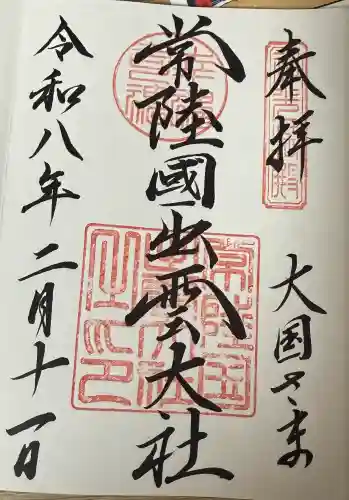 奉拝
大国さま
常陸國出雲大社
令和八年二月十一日